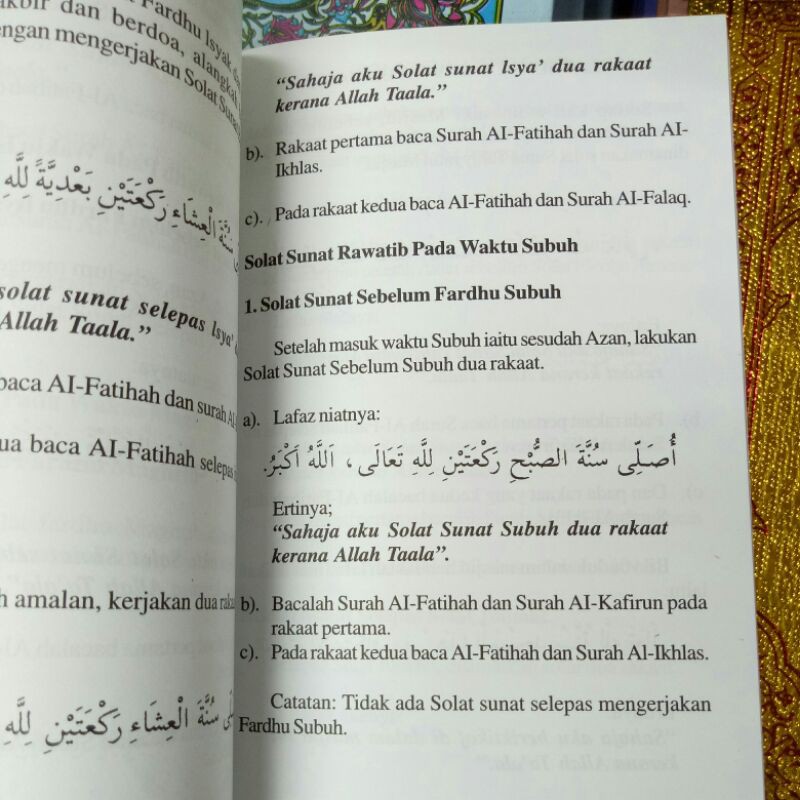 Fardhu Isyak
akbir dan berdoa, alangkah
engan mengerjakan Solat Sunat
سُنَّةَ الْعِشَاءِ رَكْعَتَيْنِ بَعْدِيَّةً لِلَّهِ
solat sunat selepas Isya'
Allah Taala.”
baca AI-Fatihah dan surah
ua baca AI-Fatihah selepas
h amalan, kerjakan dua
سُنَّةَ الْعِشَاءِ رَكْعَتَيْنِ لِلَّهِ
“Sahaja aku Solat sunat lsya’ dua rakaat
kerana Allah Taala.”
b). Rakaat pertama baca Surah AI-Fatihah dan Surah AI-
Ikhlas.
c). Pada rakaat kedua baca AI-Fatihah dan Surah AI-Falaq.
Solat Sunat Rawatib Pada Waktu Subuh
1. Solat Sunat Sebelum Fardhu Subuh
Setelah masuk waktu Subuh iaitu sesudah Azan, lakukan
Solat Sunat Sebelum Subuh dua rakaat.
a). Lafaz niatnya:
أُصَلِّى سُنَّةَ الصُّبْحِ رَكْعَتَيْنِ لِلَّهِ تَعَالَى ، اَللَّهُ اَكْبَرُ.
Ertinya;
“Sahaja aku Solat Sunat Subuh dua rakaat
kerana Allah Taala”.
b). Bacalah Surah AI-Fatihah dan Surah AI-Kafirun pada
rakaat pertama.
c). Pada rakaat kedua baca AI-Fatihah dan Surah Al-Ikhlas.
Catatan: Tidak ada Solat sunat selepas mengerjakan
Fardhu Subuh.